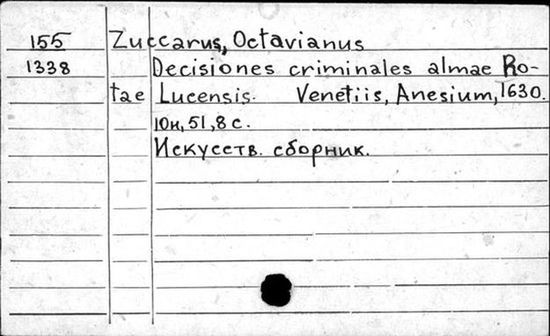 155 Zuccarus, Octavianus
1338 Decisiones criminales almae Ro-
tae Lucensis. Venetiis, Anesium, 1630.
10н, 51, 8 с.
Искусств. сборник.